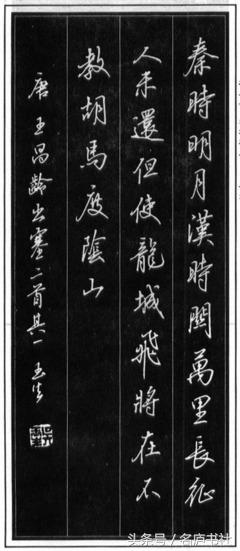 秦時明月漢時關萬里長征
人未還但使龍城飛將在不
教胡馬度陰山
唐王昌齡出塞二首其一
头条号/名庐书社